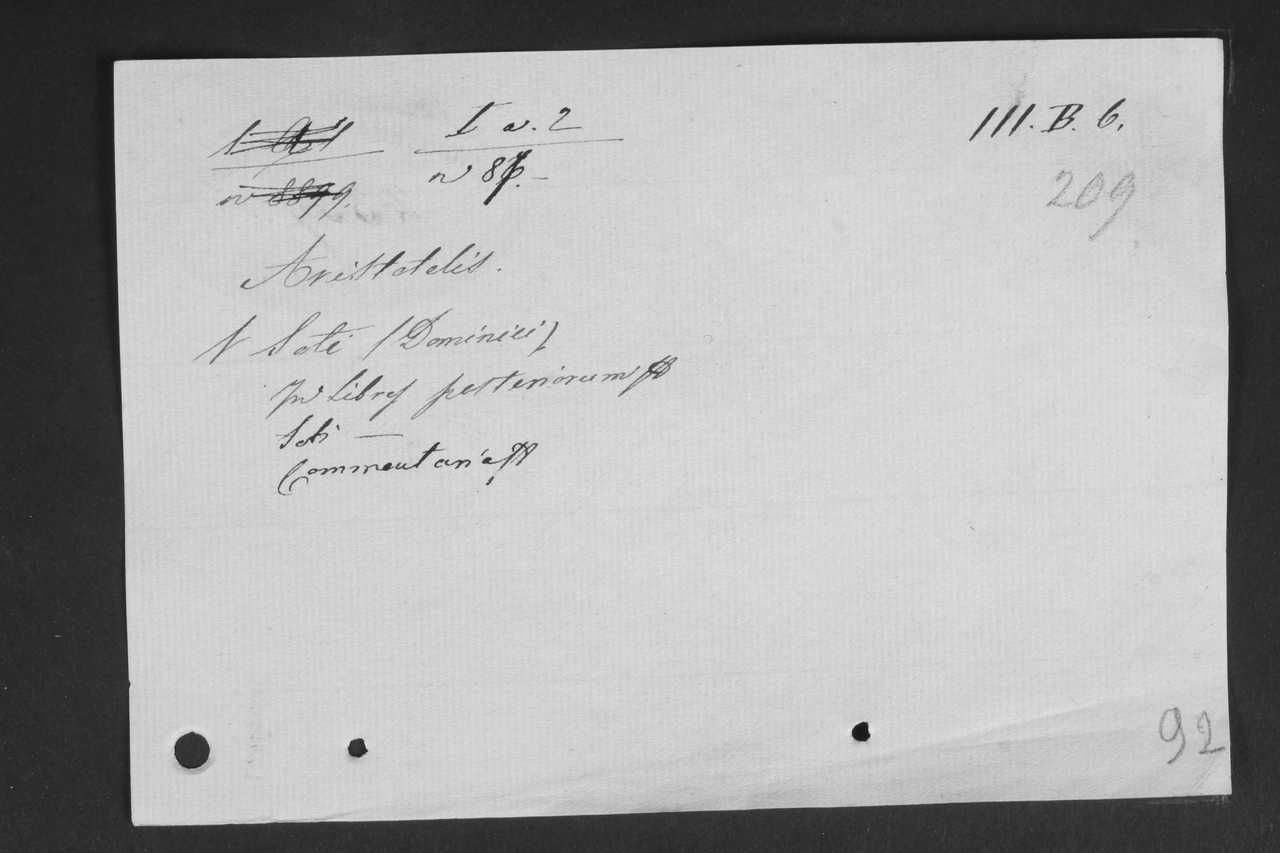 I a. 2
III. B. 6.
209
Aristotelis.
Soti (Dominici)
In Libros posteriorum
Soti —
Commentaria
92